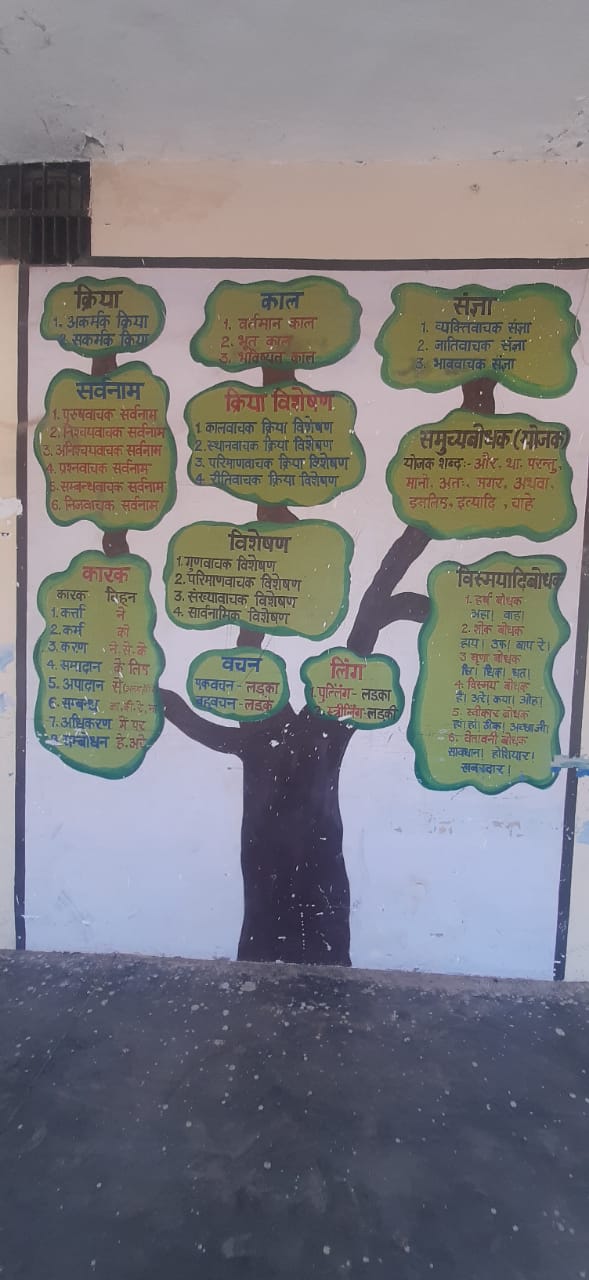 क्रिया
1. अकर्मक क्रिया
2. सकर्मक क्रिया
सर्वनाम
1. पुरुषवाचक सर्वनाम
2. निश्चयवाचक सर्वनाम
3. अनिश्चयवाचक सर्वनाम
4. प्रश्नवाचक सर्वनाम
5. सम्बन्धवाचक सर्वनाम
6. निजवाचक सर्वनाम
कारक
कारक चिह्न
1. कर्त्ता ने
2. कर्म को
3. करण ने से के
4. सम्प्रदान के लिए
5. अपादान से
6. सम्बन्ध का, की, रे, ना
7. अधिकरण में पर
8. सम्बोधन हे, अरे
काल
1. वर्तमान काल
2. भूत काल
3. भविष्यत काल
क्रिया विशेषण
1 कालवाचक क्रिया विशेषण
2. स्थानवाचक क्रिया विशेषण
3. परिमाणवाचक क्रिया विशेषण
4. रीतिवाचक क्रिया विशेषण
विशेषण
1. गुणवाचक विशेषण
2. परिमाणवाचक विशेषण
3. संख्यावाचक विशेषण
4. सार्वनामिक विशेषण
वचन
एकवचन - लड़का
बहुवचन - लड़के
लिंग
1. पुल्लिंग - लडका
2. स्त्रीलिंग - लडकी
संज्ञा
1. व्यक्तिवाचक संज्ञा
2. जातिवाचक संज्ञा
3. भाववाचक संज्ञा
समुच्यबोधक (योजक)
योजक शब्द:- और, था, परन्तु,
मानो, अतः, मगर, अथवा,
इसलिए, इत्यादि, चाहे
विस्मयादिबोधक
1. हर्ष बोधक
अहा! वाह!
2. शोक बोधक
हाय! उफ! बाप रे!
3 घृणा बोधक
छि! धिक! धत!
4. विस्मय बोधक
हैं! अरे! क्या! ओह!
5. स्वीकार बोधक
हां हां! ठीक! अच्छा जी!
6. चेतावनी बोधक
सावधान! होशियार!
खबरदार!